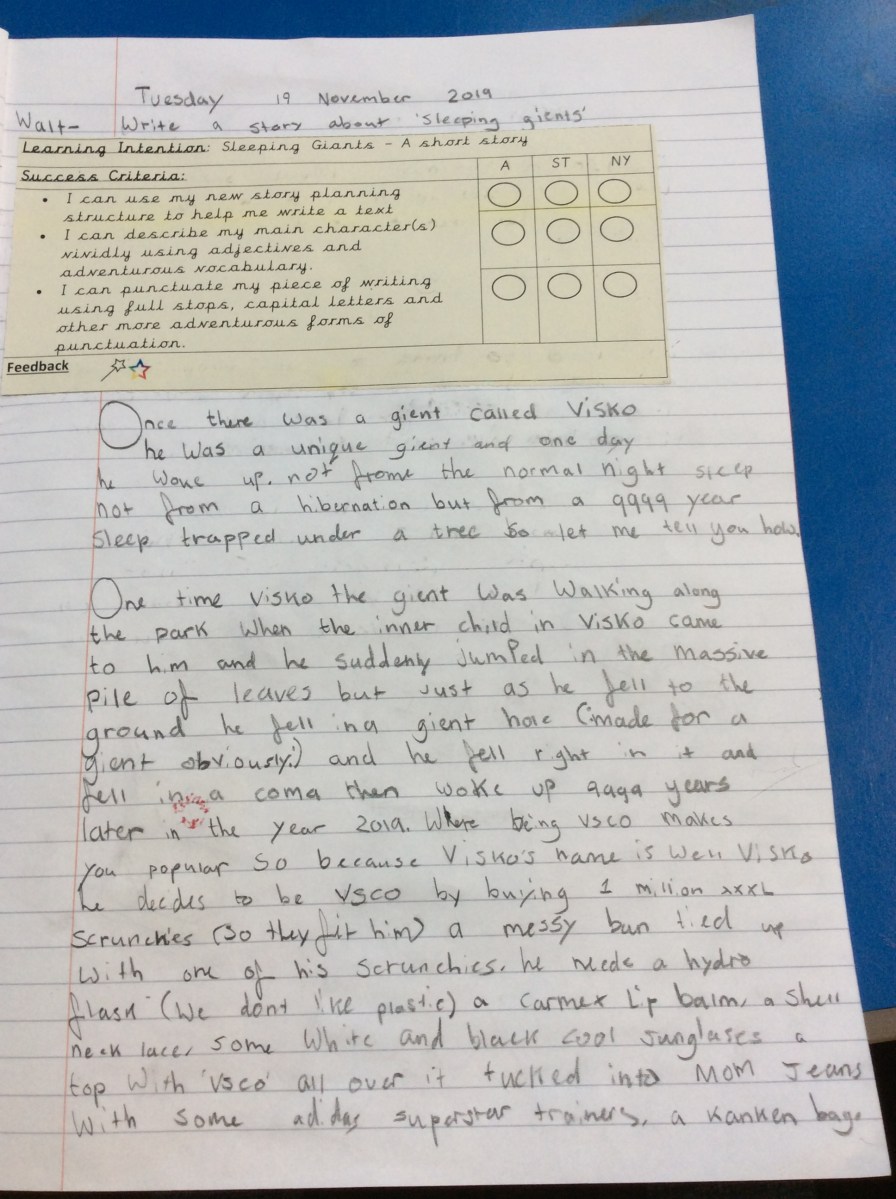 Tuesday 19 November 2019
Walt- Write a story about 'sleeping gients'
Learning Intention: Sleeping Giants - A short story
Success Criteria:
A ST NY
• I can use my new story planning
structure to help me write a text
• I can describe my main character(s)
vividly using adjectives and
adventurous vocabulary.
• I can punctuate my piece of writing
using full stops, capital letters and
other more adventurous forms of
punctuation.
Feedback
Once there was a gient called Visko
he was a unique gient and one day
he woke up. not frome the normal night sleep
not from a hibernation but from a 9999 year
sleep trapped under a tree so let me tell you how.
One time Visko the gient was walking along
the park when the inner child in Visko came
to him and he suddenly jumped in the massive
pile of leaves but just as he fell to the
ground he fell in a gient hole (made for a
gient obviously:) and he fell right in it and
fell in a coma then woke up 9999 years
later in the year 2019. Where being vsco makes
you popular so because Visko's name is well Visko
he decides to be VSCO by buying 1 million xxxL
scrunchies (so they fit him) a messy bun tied up
with one of his scrunchies, he neede a hydro
flask (we dont like plastic) a carmex lip balm, a shell
neck lace, some white and black cool sunglases a
top with 'vsco' all over it tucked into mom jeans
with some adidas superstar trainers, a kanken bag.